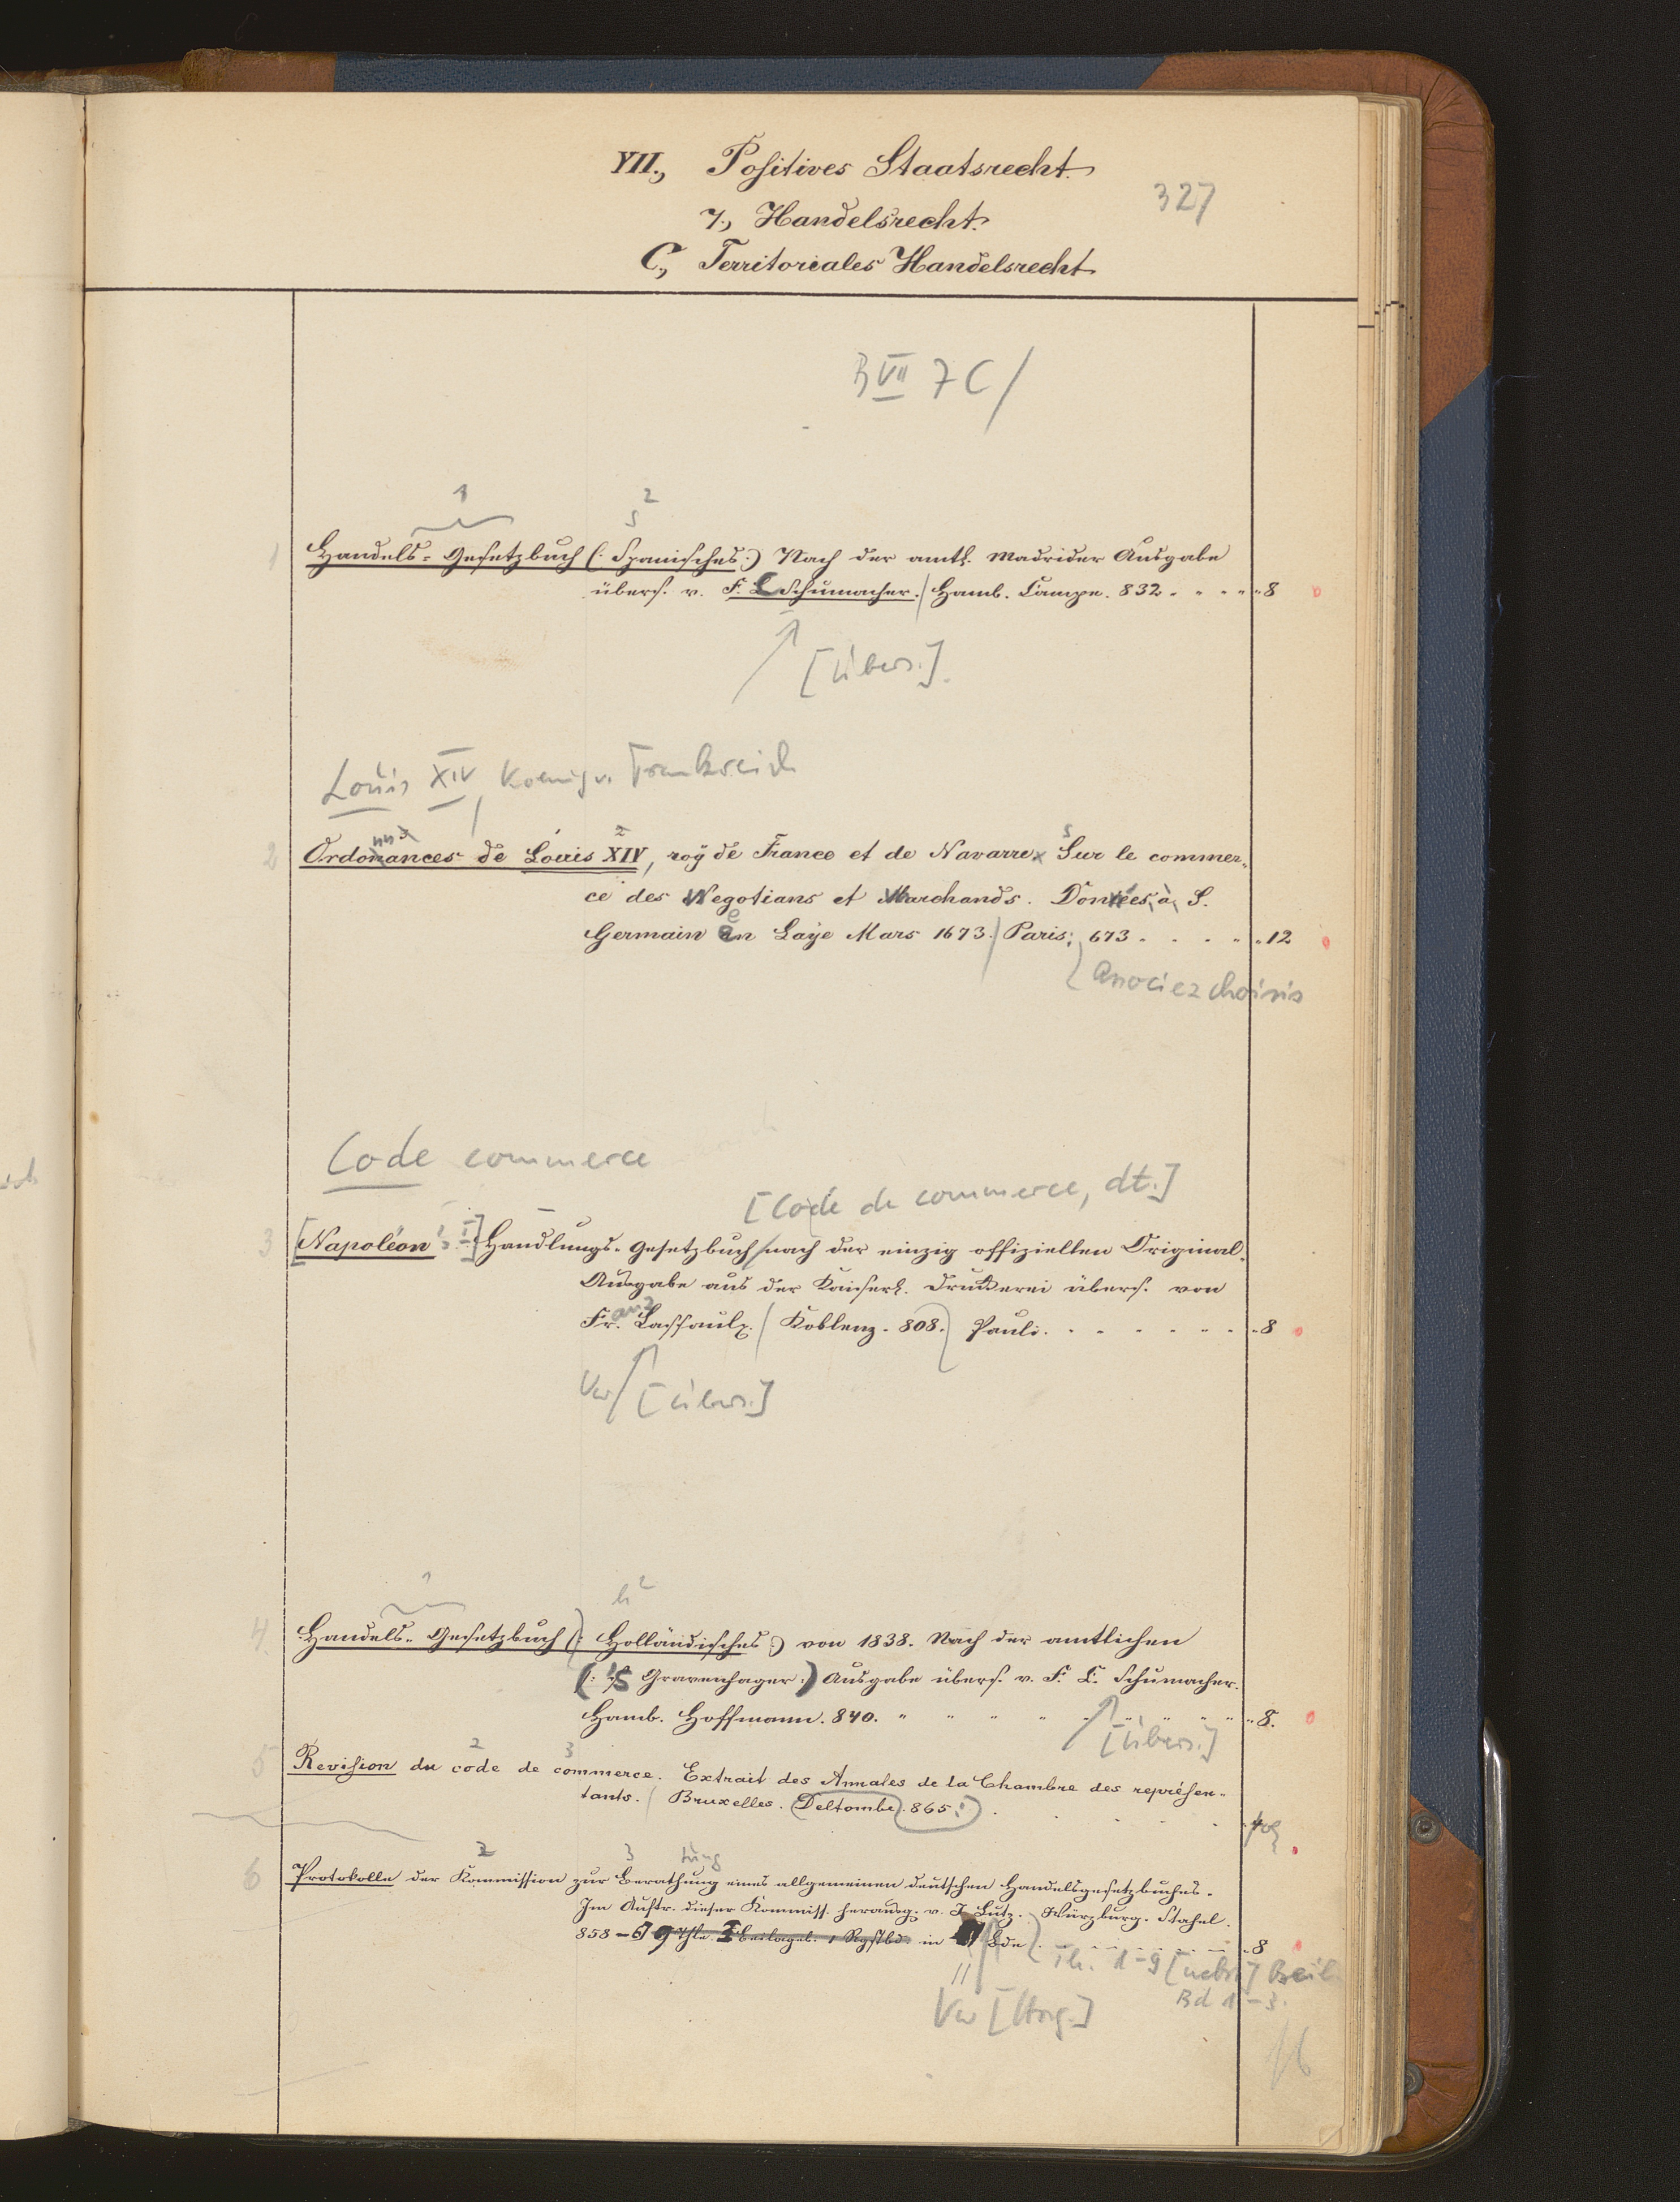 VII., Positives Staatsrecht.
327
7., Handelsrecht.
C., Territoriales Handelsrecht
B VII 7 C/
1 2
s
1 Handels-Gesetzbuch (: Spanisches :) Nach der amtl. Madrider Ausgabe
übers. v. F. C Schumacher. / Hamb. Campe. 832 8
[Übers.]
Louis XIV, Koenig v. Frankreich
2 Ordonnances de Louis XIV, roÿ de France et de Navarre Sur le commer-
ce des Negotians et Marchands. Données à S.
Germain en Laÿe Mars 1673. / Paris; 673 12
Associez choisis
Code commerce
[Code de commerce, dt.]
3 [Napoléon I] Handlungs-Gesetzbuch / nach der einzig offiziellen Original-
Ausgabe aus der Kaiserl. Druckerei übers. von
Franz Lassaulx. / Koblenz. 808. Pauli. 8
Vw / [Übers.]
1 h 2
4 Handels-Gesetzbuch (: Holländisches :) von 1838. Nach der amtlichen
(: 's Gravenhager :) Ausgabe übers. v. F. C. Schumacher.
Hamb. Hoffmann. 840. 8.
[Übers.]
2 3
5 Revision du code de commerce. Extrait des Annales de la Chambre des représen-
tants. / Bruxelles. Deltombe. 865.
2 3 tung
6 Protokolle der Kommission zur Berathung eines allgemeinen deutschen Handelsgesetzbuches.
Im Auftr. dieser Kommiss. herausg. v. J Lutz. Würzburg. Stahel.
858-6 9 Thle. Beilageb. 1 Rgstbd. in Bde 8
Th. 1-9 [nebst] Beil.
Bd 1-3.
Vw [Hrsg.]